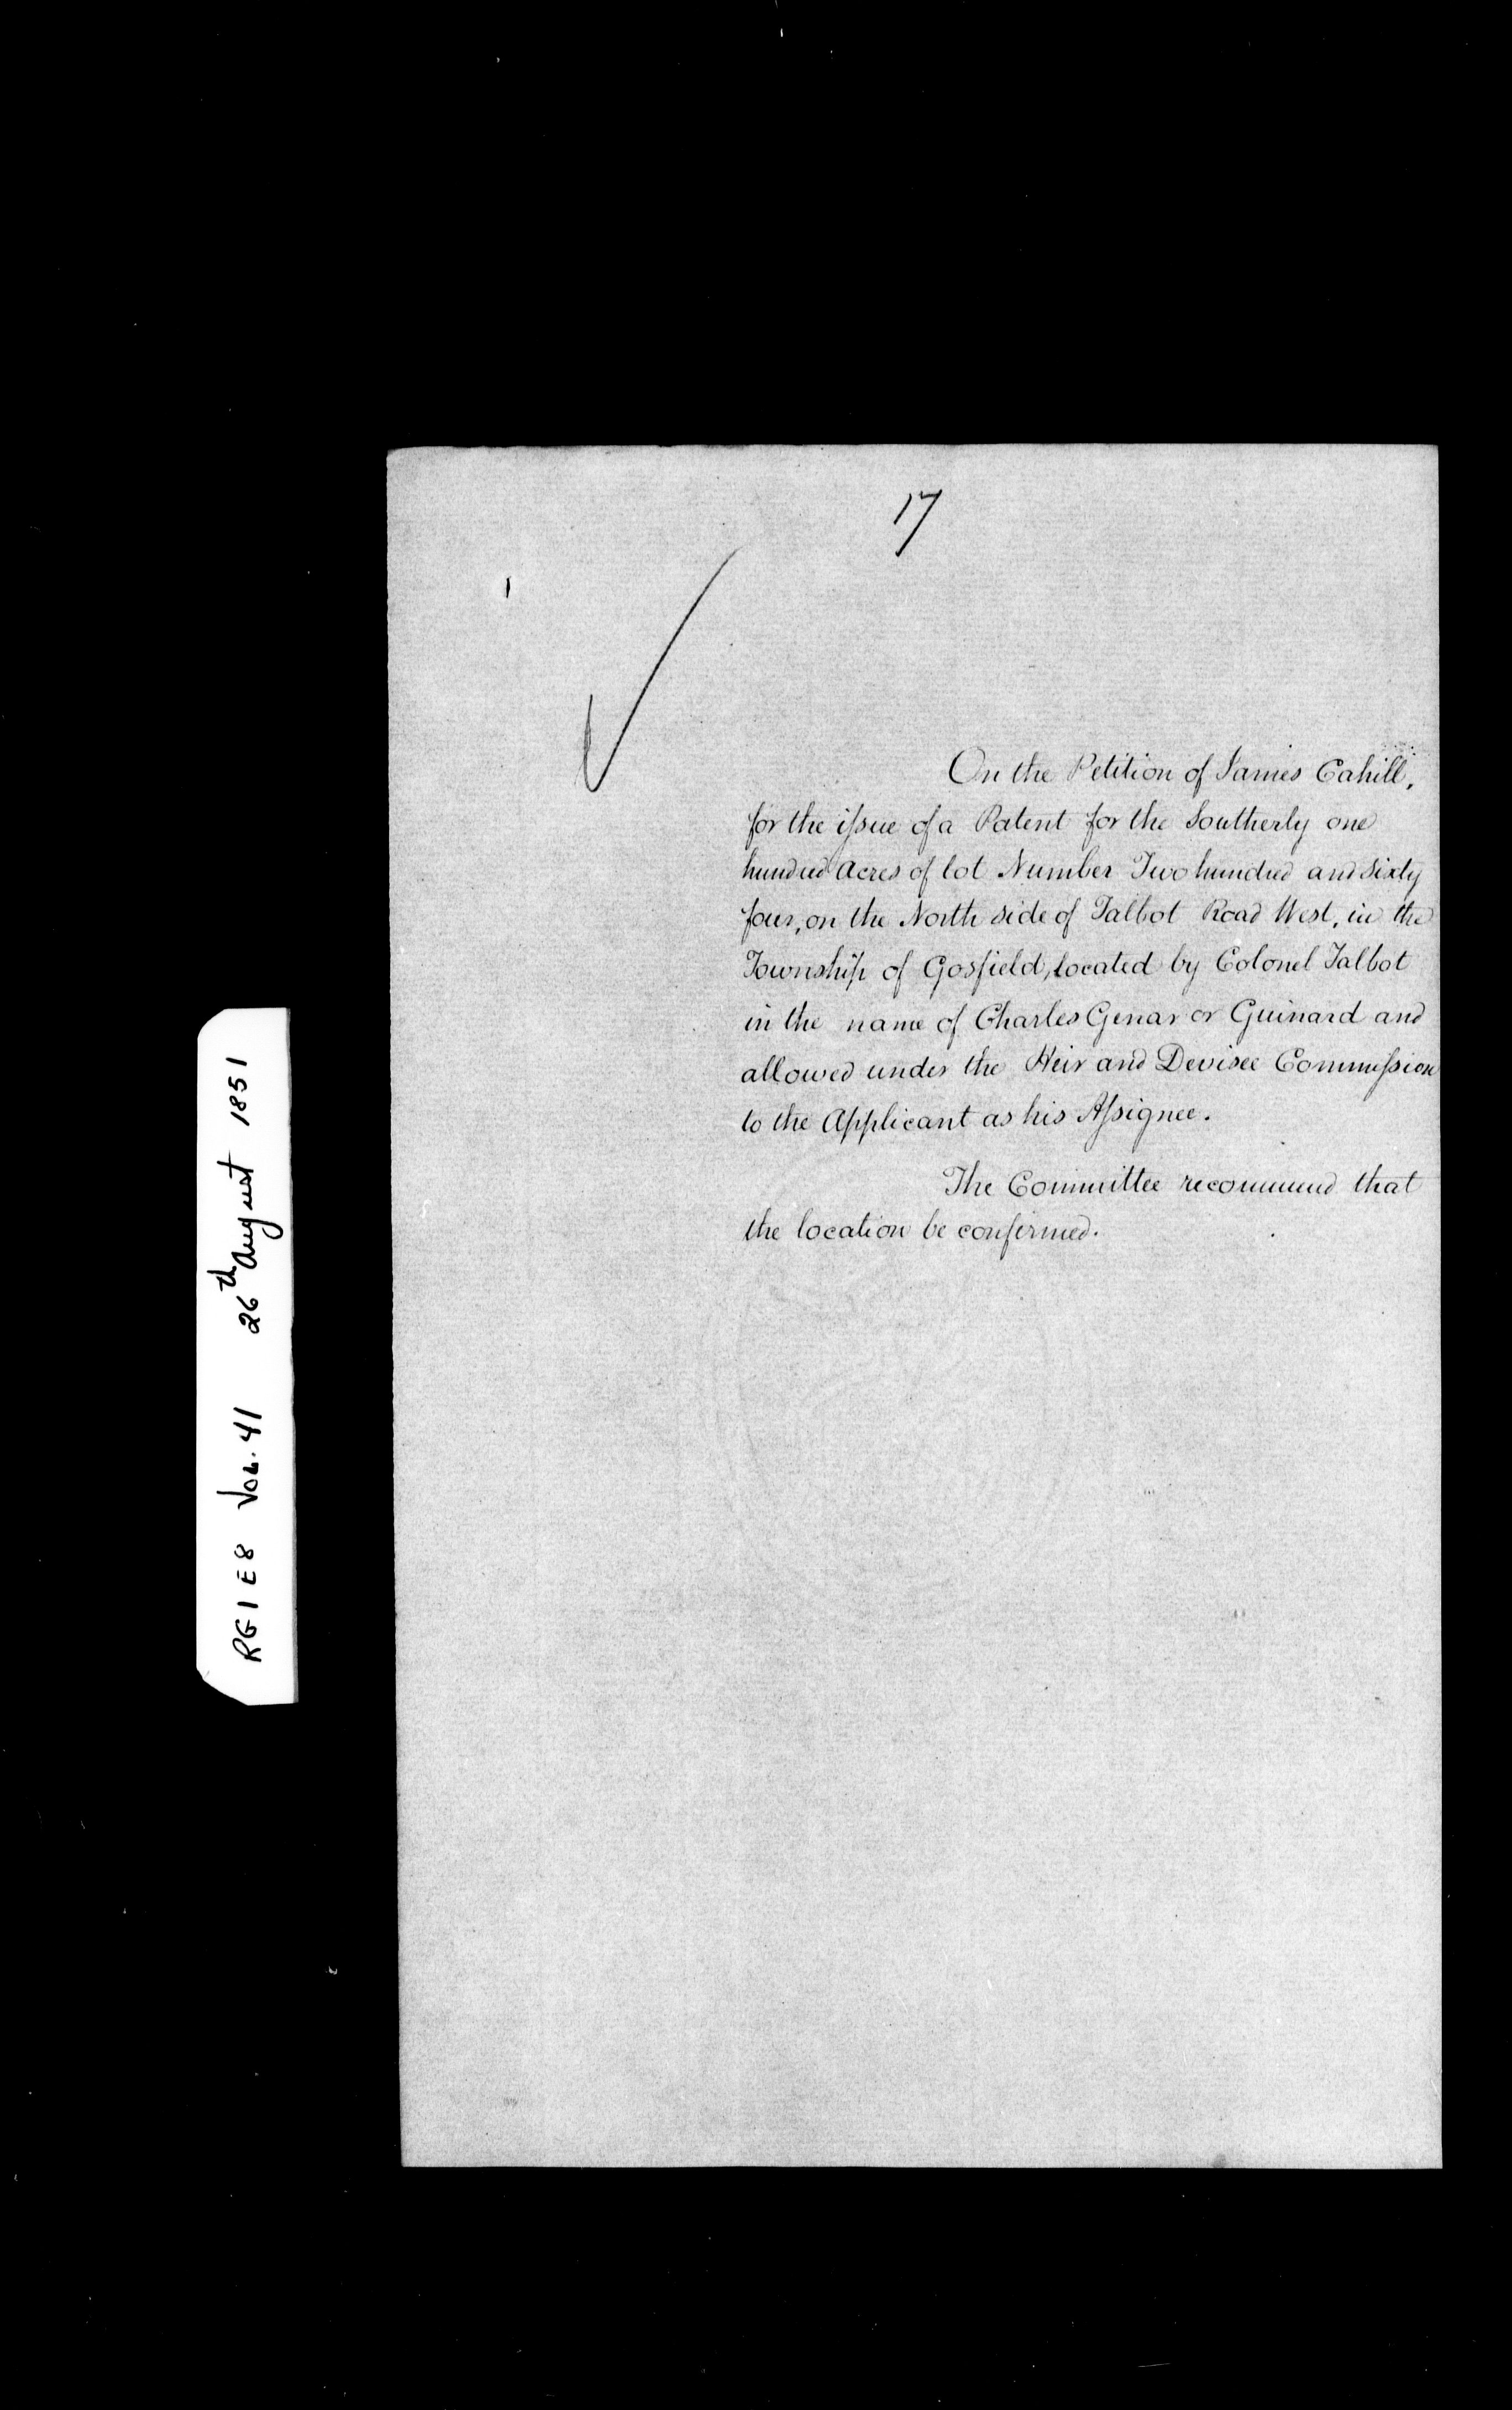 17
On the Petition of James Cahill,
for the issue of a Patent for the Southerly one
hundred Acres of lot Number Two hundred and sixty
four, on the North side of Talbot Road West, in the
Township of Gosfield, located by Colonel Talbot
in the name of Charles Genar or Guinard and
allowed under the Heir and Devisee Commission
to the Applicant as his Assignee.
The Committee recommend that
the location be confirmed.
RG1 E8 Vol. 41 26th August 1851